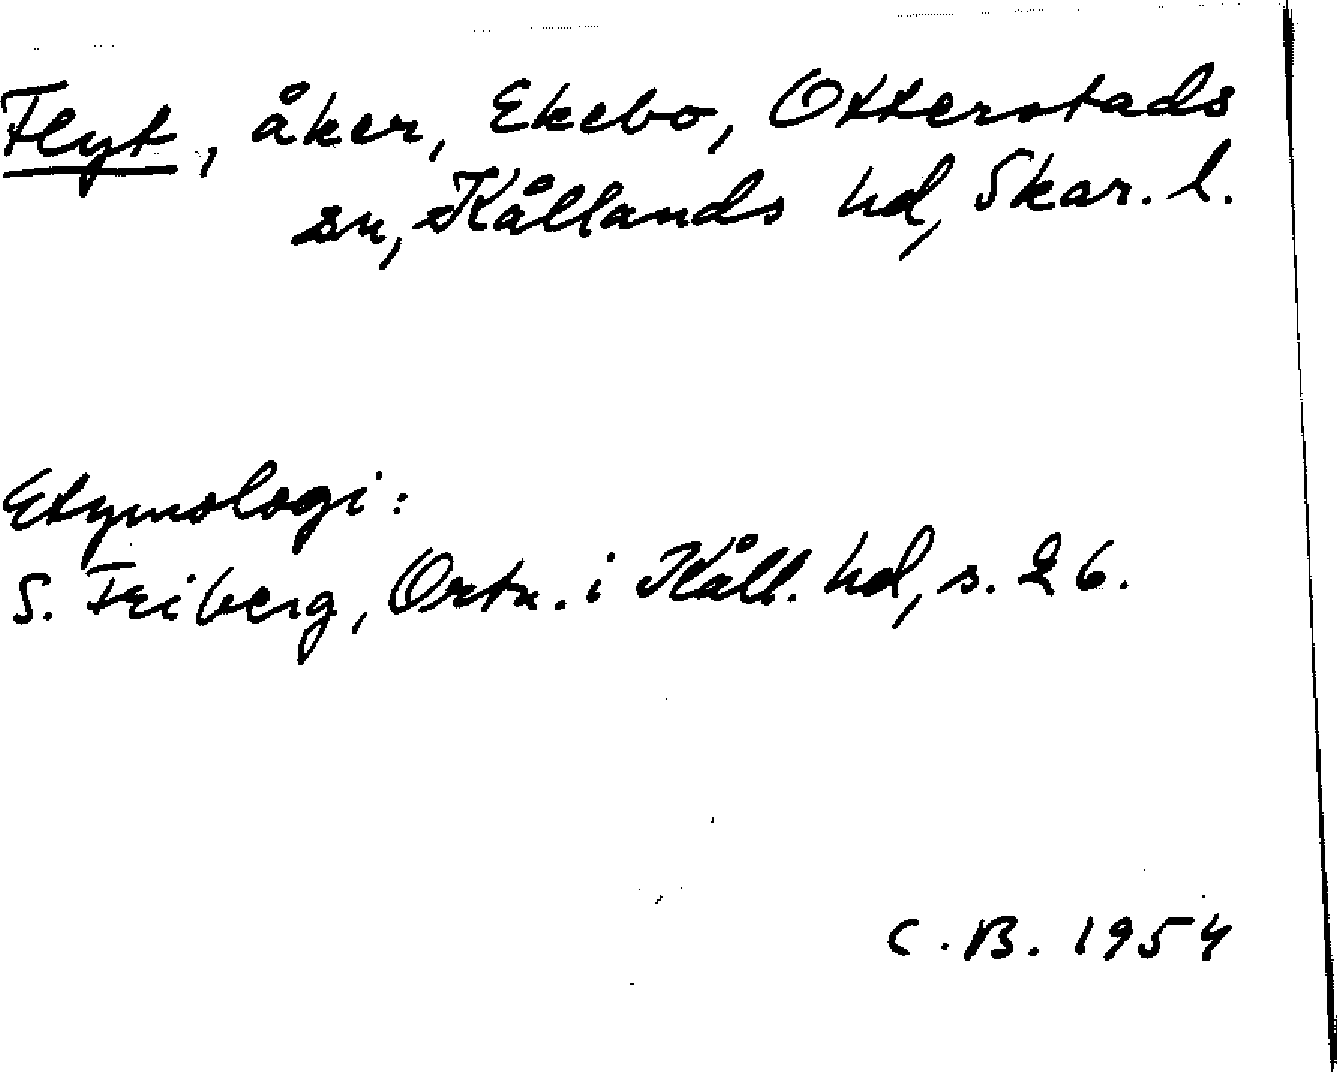 Flyt, åker, Ekebo, Otterstads
sn, Kållands hd, Skar. l.
Etymologi:
S. Friberg, Ortn. i Kåll. hd, s. 26.
C.B. 1954